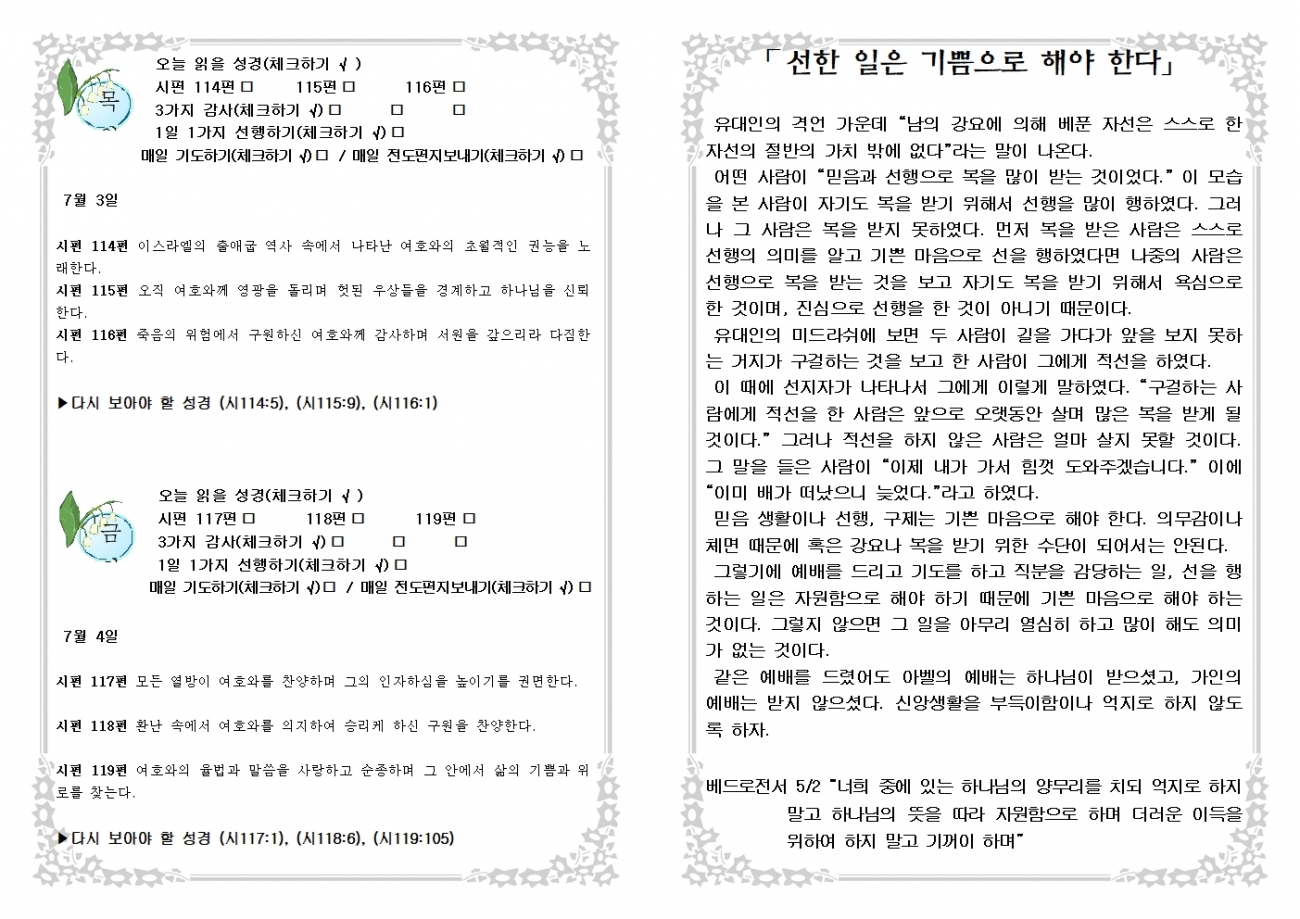 목
오늘 읽을 성경(체크하기 √ )
시편 114편 □ 115편 □ 116편 □
3가지 감사(체크하기 √) □ □ □
1일 1가지 선행하기(체크하기 √) □
매일 기도하기(체크하기 √) □ / 매일 전도편지보내기(체크하기 √) □
7월 3일
시편 114편 이스라엘의 출애굽 역사 속에서 나타난 여호와의 초월적인 권능을 노
래한다.
시편 115편 오직 여호와께 영광을 돌리며 헛된 우상들을 경계하고 하나님을 신뢰
한다.
시편 116편 죽음의 위험에서 구원하신 여호와께 감사하며 서원을 갚으리라 다짐한
다.
▶다시 보아야 할 성경 (시114:5), (시115:9), (시116:1)
금
오늘 읽을 성경(체크하기 √ )
시편 117편 □ 118편 □ 119편 □
3가지 감사(체크하기 √) □ □ □
1일 1가지 선행하기(체크하기 √) □
매일 기도하기(체크하기 √) □ / 매일 전도편지보내기(체크하기 √) □
7월 4일
시편 117편 모든 열방이 여호와를 찬양하며 그의 인자하심을 높이기를 권면한다.
시편 118편 환난 속에서 여호와를 의지하여 승리케 하신 구원을 찬양한다.
시편 119편 여호와의 율법과 말씀을 사랑하고 순종하며 그 안에서 삶의 기쁨과 위
로를 찾는다.
▶다시 보아야 할 성경 (시117:1), (시118:6), (시119:105)
「 선한 일은 기쁨으로 해야 한다」
유대인의 격언 가운데 “남의 강요에 의해 베푼 자선은 스스로 한
자선의 절반의 가치 밖에 없다”라는 말이 나온다.
어떤 사람이 “믿음과 선행으로 복을 많이 받는 것이었다.” 이 모습
을 본 사람이 자기도 복을 받기 위해서 선행을 많이 행하였다. 그러
나 그 사람은 복을 받지 못하였다. 먼저 복을 받은 사람은 스스로
선행의 의미를 알고 기쁜 마음으로 선을 행하였다면 나중의 사람은
선행으로 복을 받는 것을 보고 자기도 복을 받기 위해서 욕심으로
한 것이며, 진심으로 선행을 한 것이 아니기 때문이다.
유대인의 미드라쉬에 보면 두 사람이 길을 가다가 앞을 보지 못하
는 거지가 구걸하는 것을 보고 한 사람이 그에게 적선을 하였다.
이 때에 선지자가 나타나서 그에게 이렇게 말하였다. “구걸하는 사
람에게 적선을 한 사람은 앞으로 오랫동안 살며 많은 복을 받게 될
것이다.” 그러나 적선을 하지 않은 사람은 얼마 살지 못할 것이다.
그 말을 들은 사람이 “이제 내가 가서 힘껏 도와주겠습니다.” 이에
“이미 배가 떠났으니 늦었다.”라고 하였다.
믿음 생활이나 선행, 구제는 기쁜 마음으로 해야 한다. 의무감이나
체면 때문에 혹은 강요나 복을 받기 위한 수단이 되어서는 안된다.
그렇기에 예배를 드리고 기도를 하고 직분을 감당하는 일, 선을 행
하는 일은 자원함으로 해야 하기 때문에 기쁜 마음으로 해야 하는
것이다. 그렇지 않으면 그 일을 아무리 열심히 하고 많이 해도 의미
가 없는 것이다.
같은 예배를 드렸어도 아벨의 예배는 하나님이 받으셨고, 가인의
예배는 받지 않으셨다. 신앙생활을 부득이함이나 억지로 하지 않도
록 하자.
베드로전서 5/2 “너희 중에 있는 하나님의 양무리를 치되 억지로 하지
말고 하나님의 뜻을 따라 자원함으로 하며 더러운 이득을
위하여 하지 말고 기꺼이 하며”